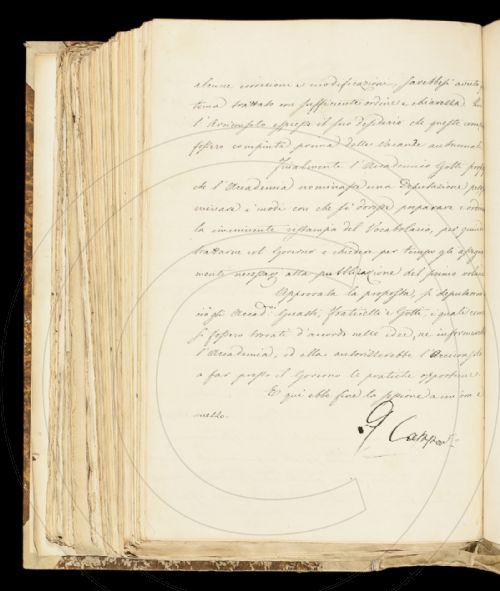 alcune correzioni e modificazioni, sarebbesi avuto
tema trattato con sufficiente ordine e chiarezza
l'Arciconsolo espresse il suo desiderio che queste
fossero compiute prima delle Vacanze autunnali.
Finalmente l'Accademico Gotti
che l'Accademia nominasse una Deputazione per
i modi con che si dovesse preparare e
la imminente ristampa del Vocabolario, per quindi
trattarne col Governo e chiedere per tempo gli
menti necessarj alla pubblicazione del primo
Approvata la proposta, si
Accad.ci Fraticelli e Gotti, i quali
si fossero trovati d'accordo nelle idee, ne
l'Accademia, ed ella autorizzerebbe l'Arciconsolo
a far presso il Governo le pratiche opportune.
E qui ebbe fine la sessione a un'ora e
mezzo.
G Capponi